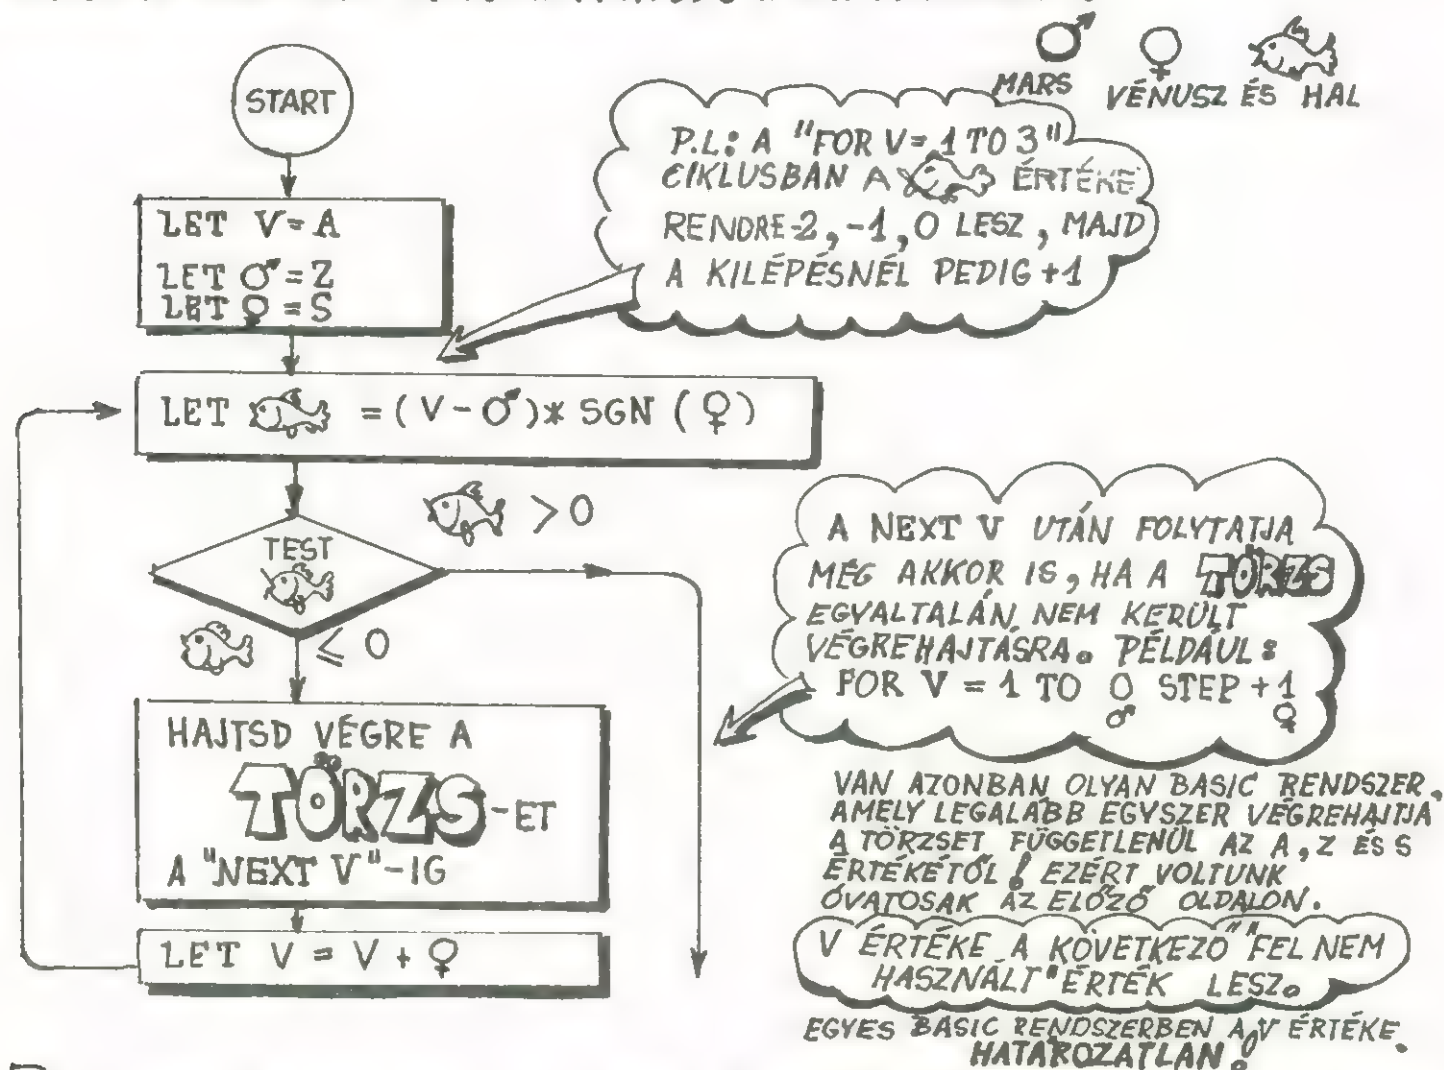 MARS VÉNUSZ ÉS HAL
START
P.L.: A "FOR V = 1 TO 3"
CIKLUSBAN A ÉRTÉKE
RENDRE -2, -1, 0 LESZ, MAJD
A KILÉPÉSNÉL PEDIG +1
LET V = A
LET ♂ = Z
LET ♀ = S
LET = (V - ♂) * SGN (♀)
> 0
TEST
≤ 0
A NEXT V UTÁN FOLYTATJA
MÉG AKKOR IS, HA A TÖRZS
EGYALTALÁN NEM KERÜLT
VÉGREHAJTÁSRA. PÉLDÁUL:
FOR V = 1 TO 0 STEP + 1
♂ ♀
HAJTSD VÉGRE A
TÖRZS-ET
A "NEXT V"-IG
LET V = V + ♀
VAN AZONBAN OLYAN BASIC RENDSZER,
AMELY LEGALÁBB EGYSZER VÉGREHAJTJA
A TÖRZSET FÜGGETLENÜL AZ A, Z ÉS S
ÉRTÉKÉTŐL! EZÉRT VOLTUNK
ÓVATOSAK AZ ELŐZŐ OLDALON.
V ÉRTÉKE A KÖVETKEZŐ "FEL NEM
HASZNÁLT" ÉRTÉK LESZ.
EGYES BASIC RENDSZERBEN A V ÉRTÉKE
HATÁROZATLAN!